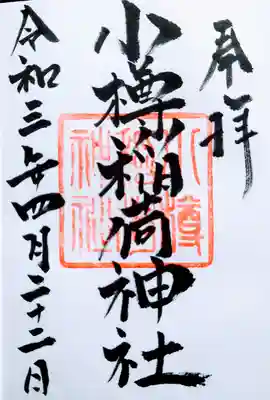 奉拝
小樽稲荷神社
令和三年四月二十二日
小樽稲荷神社